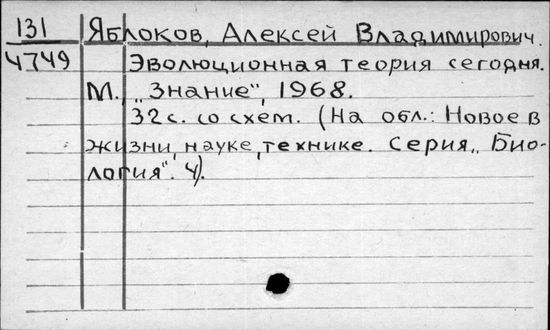 131 Яблоков, Алексей Владимирович.
4749 Эволюционная теория сегодня.
М., „Знание", 1968.
32 с. со схем. (На обл.: Новое в
жизни, науке, технике. Серия „Био-
логия". 4).